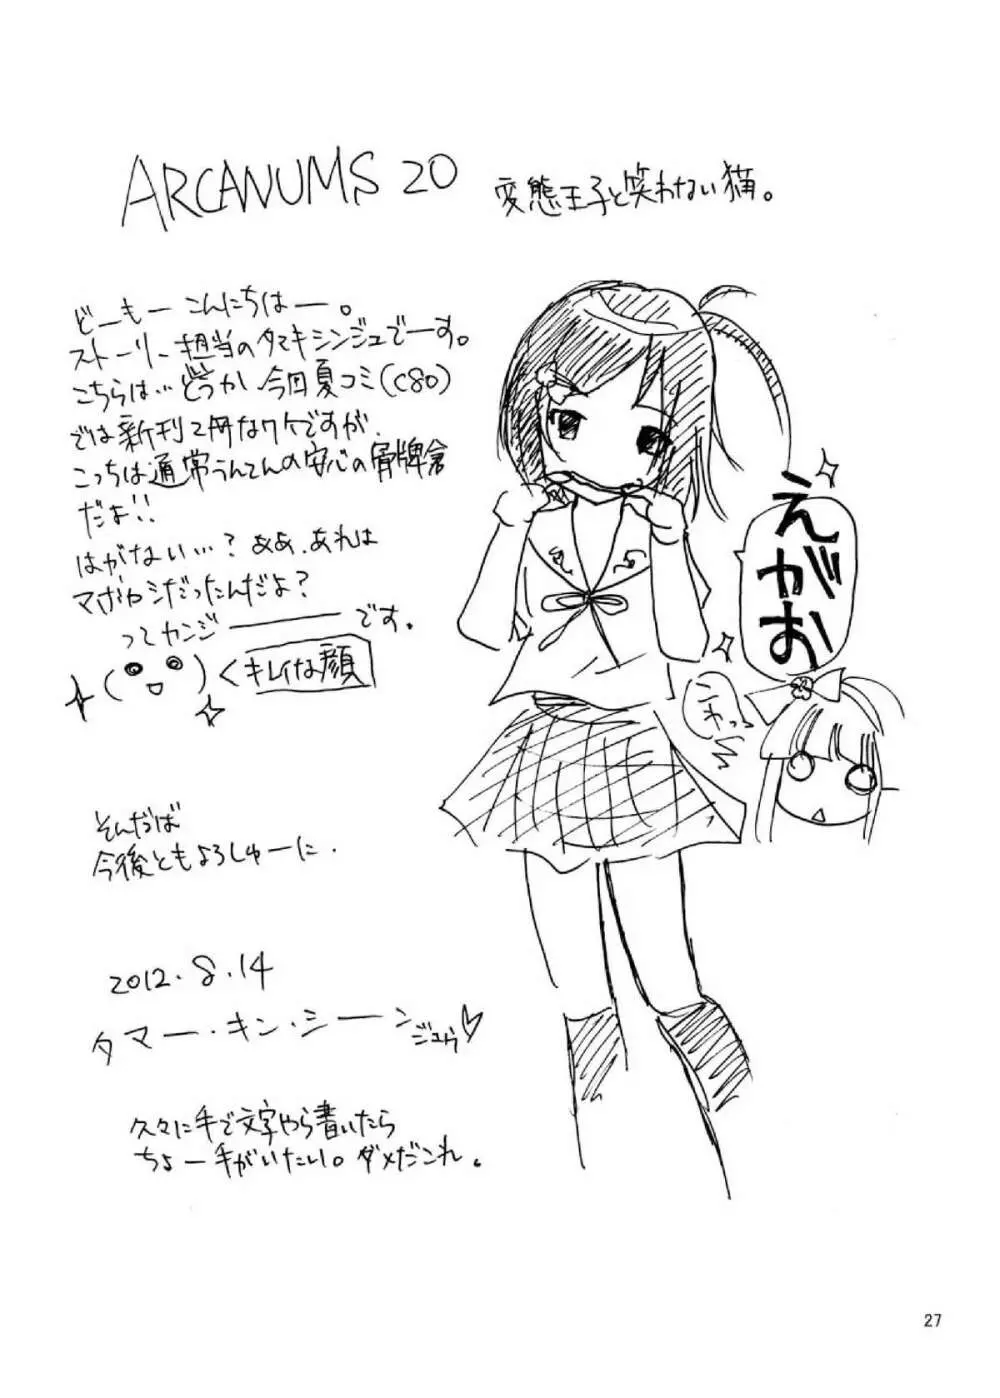 ARCANUMS 20
変態王子と笑わない猫。
どーもー こんにちはー。
ストーリー担当のタマキシンジュでーす。
こちらは…どうか 今回夏コミ(C80)
では新刊2冊なワケですが、
こっちは通常うんてんの安心の骨牌倉
だよ!!
はがない…?ああ、あれは
マボロシだったんだよ?
ってカンジーーーです。
キレイな顔
えがお
これっ
そんだば
今後ともよろしゅーに.
2012.8.14
タマー・キン・シーンジュウ♡
久々に手で文字やら書いたら
ちょー手がいたい。ダメだこれ。
27